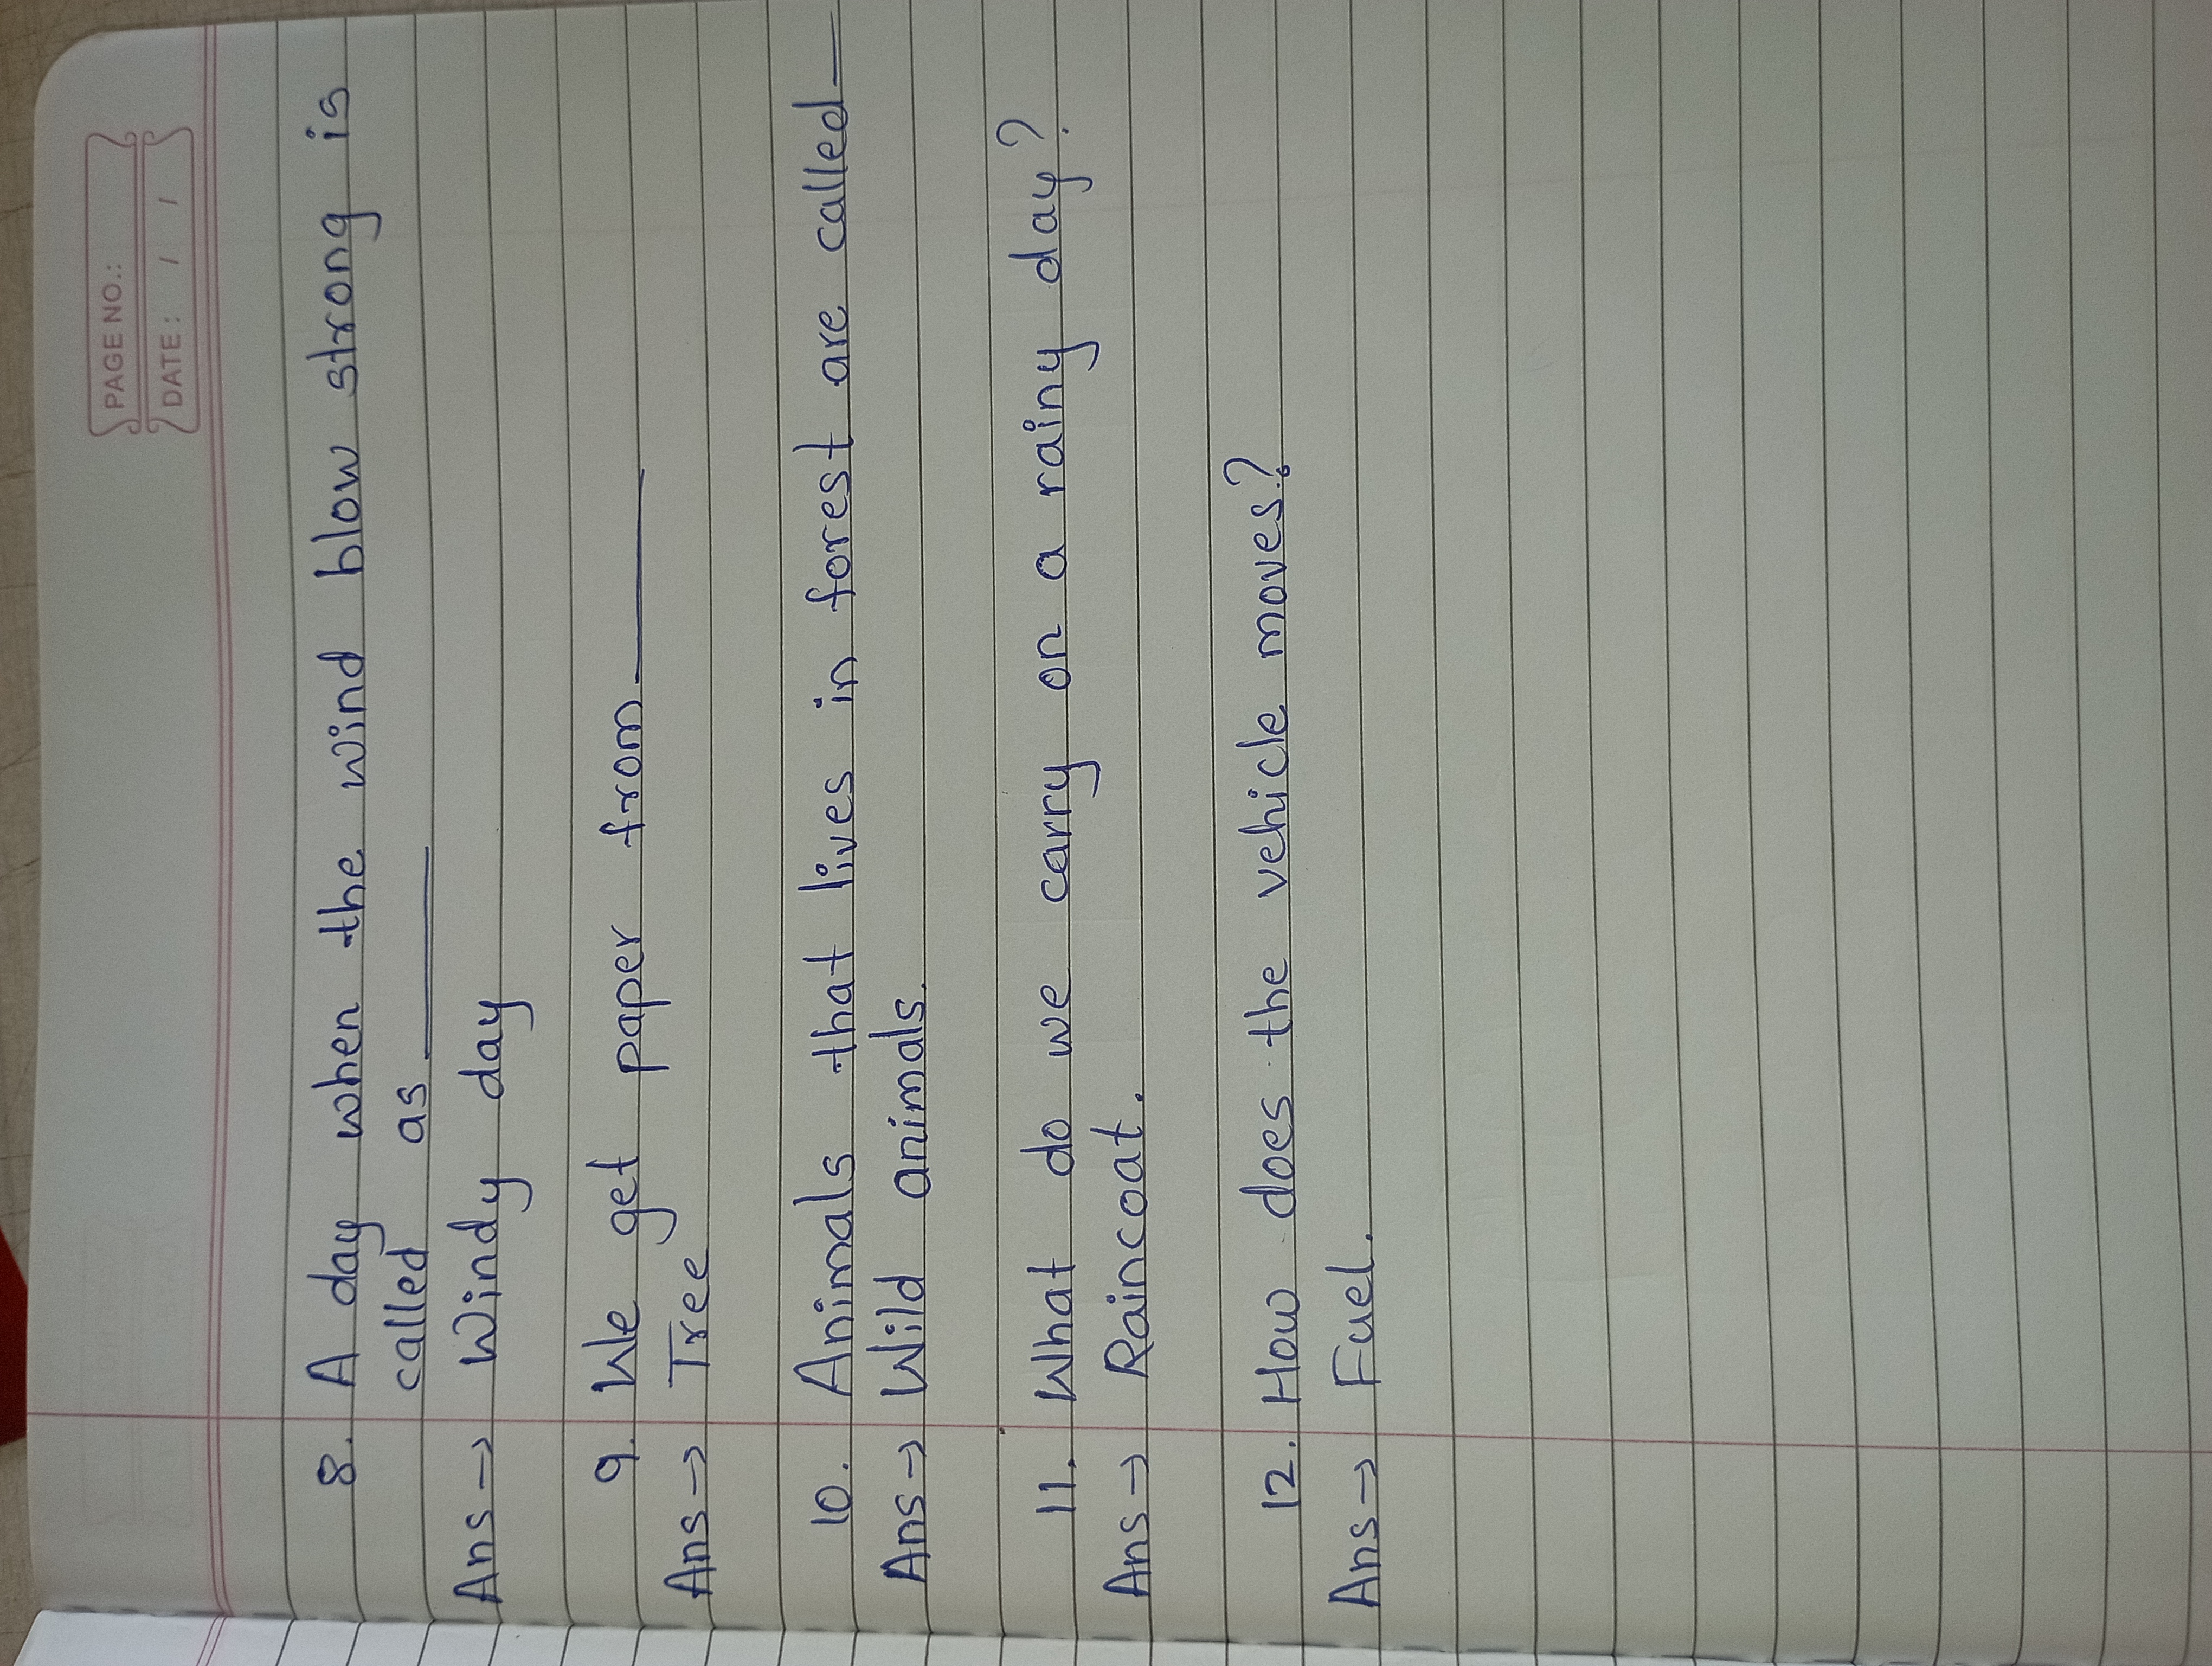 PAGE NO.:
DATE: / /
8. A day when the wind blow strong is
called as ______
Ans → Windy day
9. We get paper from ______
Ans → Tree
10. Animals that lives in forest are called __
Ans → Wild animals.
11. What do we carry on a rainy day?
Ans → Raincoat.
12. How does the vehicle moves?
Ans → Fuel.